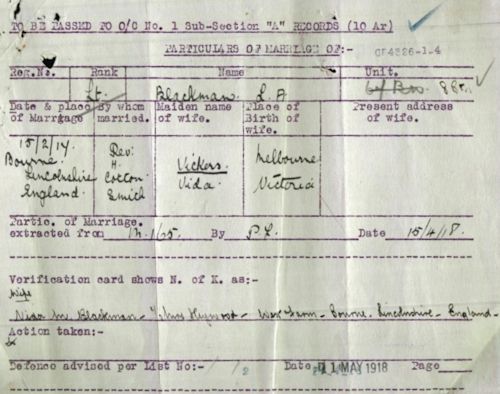 TO BE PASSED TO O/C No. 1 Sub-Section "A" RECORDS (10 Ar)
PARTICULARS OF MARRIAGE OF:-
Reg.No. Rank Name Unit.
Lt. Blackman L. A 8 Bn.
Date & place of Marrgage By whom married. Maiden name of wife. Place of Birth of wife. Present address of wife.
15/2/17 Rev: Vickers. Melbourne
Bourne H. Vida. Victoria
Lincolnshire Cotton
England. Smith
Partic. of Marriage.
extracted from M.1/65. By P.L. Date 15/4/18.
Verification card shows N. of K. as:-
Wife
Blackman - Mrs Heywood - West Farm - Bourne. Lincolnshire - England -
Action taken:-
Defence advised per List No:- 2 Date 1 MAY 1918 Page